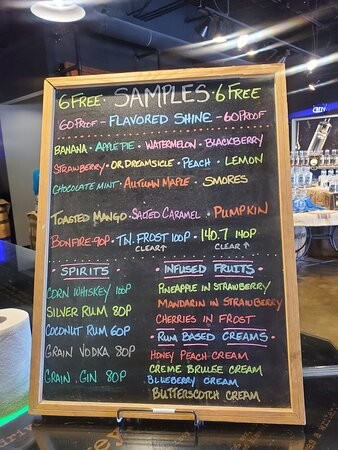 6 FREE · SAMPLES · 6 FREE
60 PROOF - FLAVORED SHINE - 60 PROOF
BANANA · APPLE PIE · WATERMELON · BLACKBERRY
STRAWBERRY · ORDREMSICLE · PEACH · LEMON
CHOCOLATE MINT · AUTUMN MAPLE · SMORES
TOASTED MANGO · SALTED CARAMEL · PUMPKIN
BONFIRE-90P · TN. FROST 100P · 140.7 140P
CLEAR↑ CLEAR↑
· SPIRITS ·
CORN WHISKEY 100P
SILVER RUM 80P
COCONUT RUM 60P
GRAIN VODKA 80P
GRAIN . GIN 80P
· INFUSED FRUITS ·
PINEAPPLE IN STRAWBERRY
MANDARIN IN STRAWBERRY
CHERRIES IN FROST
· RUM BASED CREAMS ·
HONEY PEACH CREAM
CREME BRULEE CREAM
BLUEBERRY CREAM
BUTTERSCOTCH CREAM